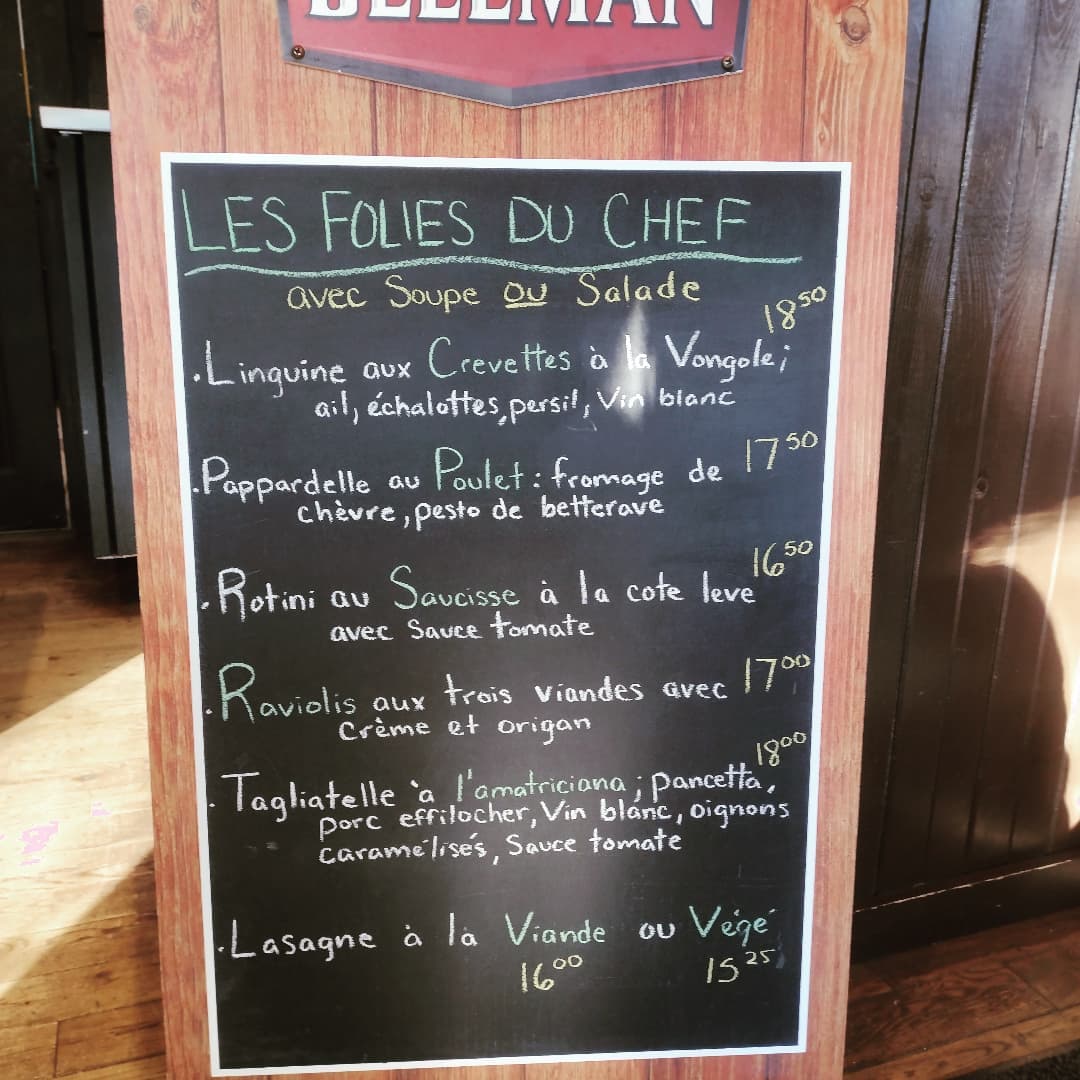 LES FOLIES DU CHEF
avec Soupe OU Salade
18⁵⁰
.Linguine aux Crevettes à la Vongole;
ail, échalottes, persil, Vin blanc
17⁵⁰
.Pappardelle au Poulet: fromage de
chèvre, pesto de betterave
16⁵⁰
.Rotini au Saucisse à la cote leve
avec Sauce tomate
17⁰⁰
.Raviolis aux trois viandes avec
Crème et origan
18⁰⁰
.Tagliatelle à l'amatriciana; pancetta,
porc effilocher, Vin blanc, oignons
caramélisés, Sauce tomate
.Lasagne à là Viande ou Végé
16⁰⁰ 15²⁵